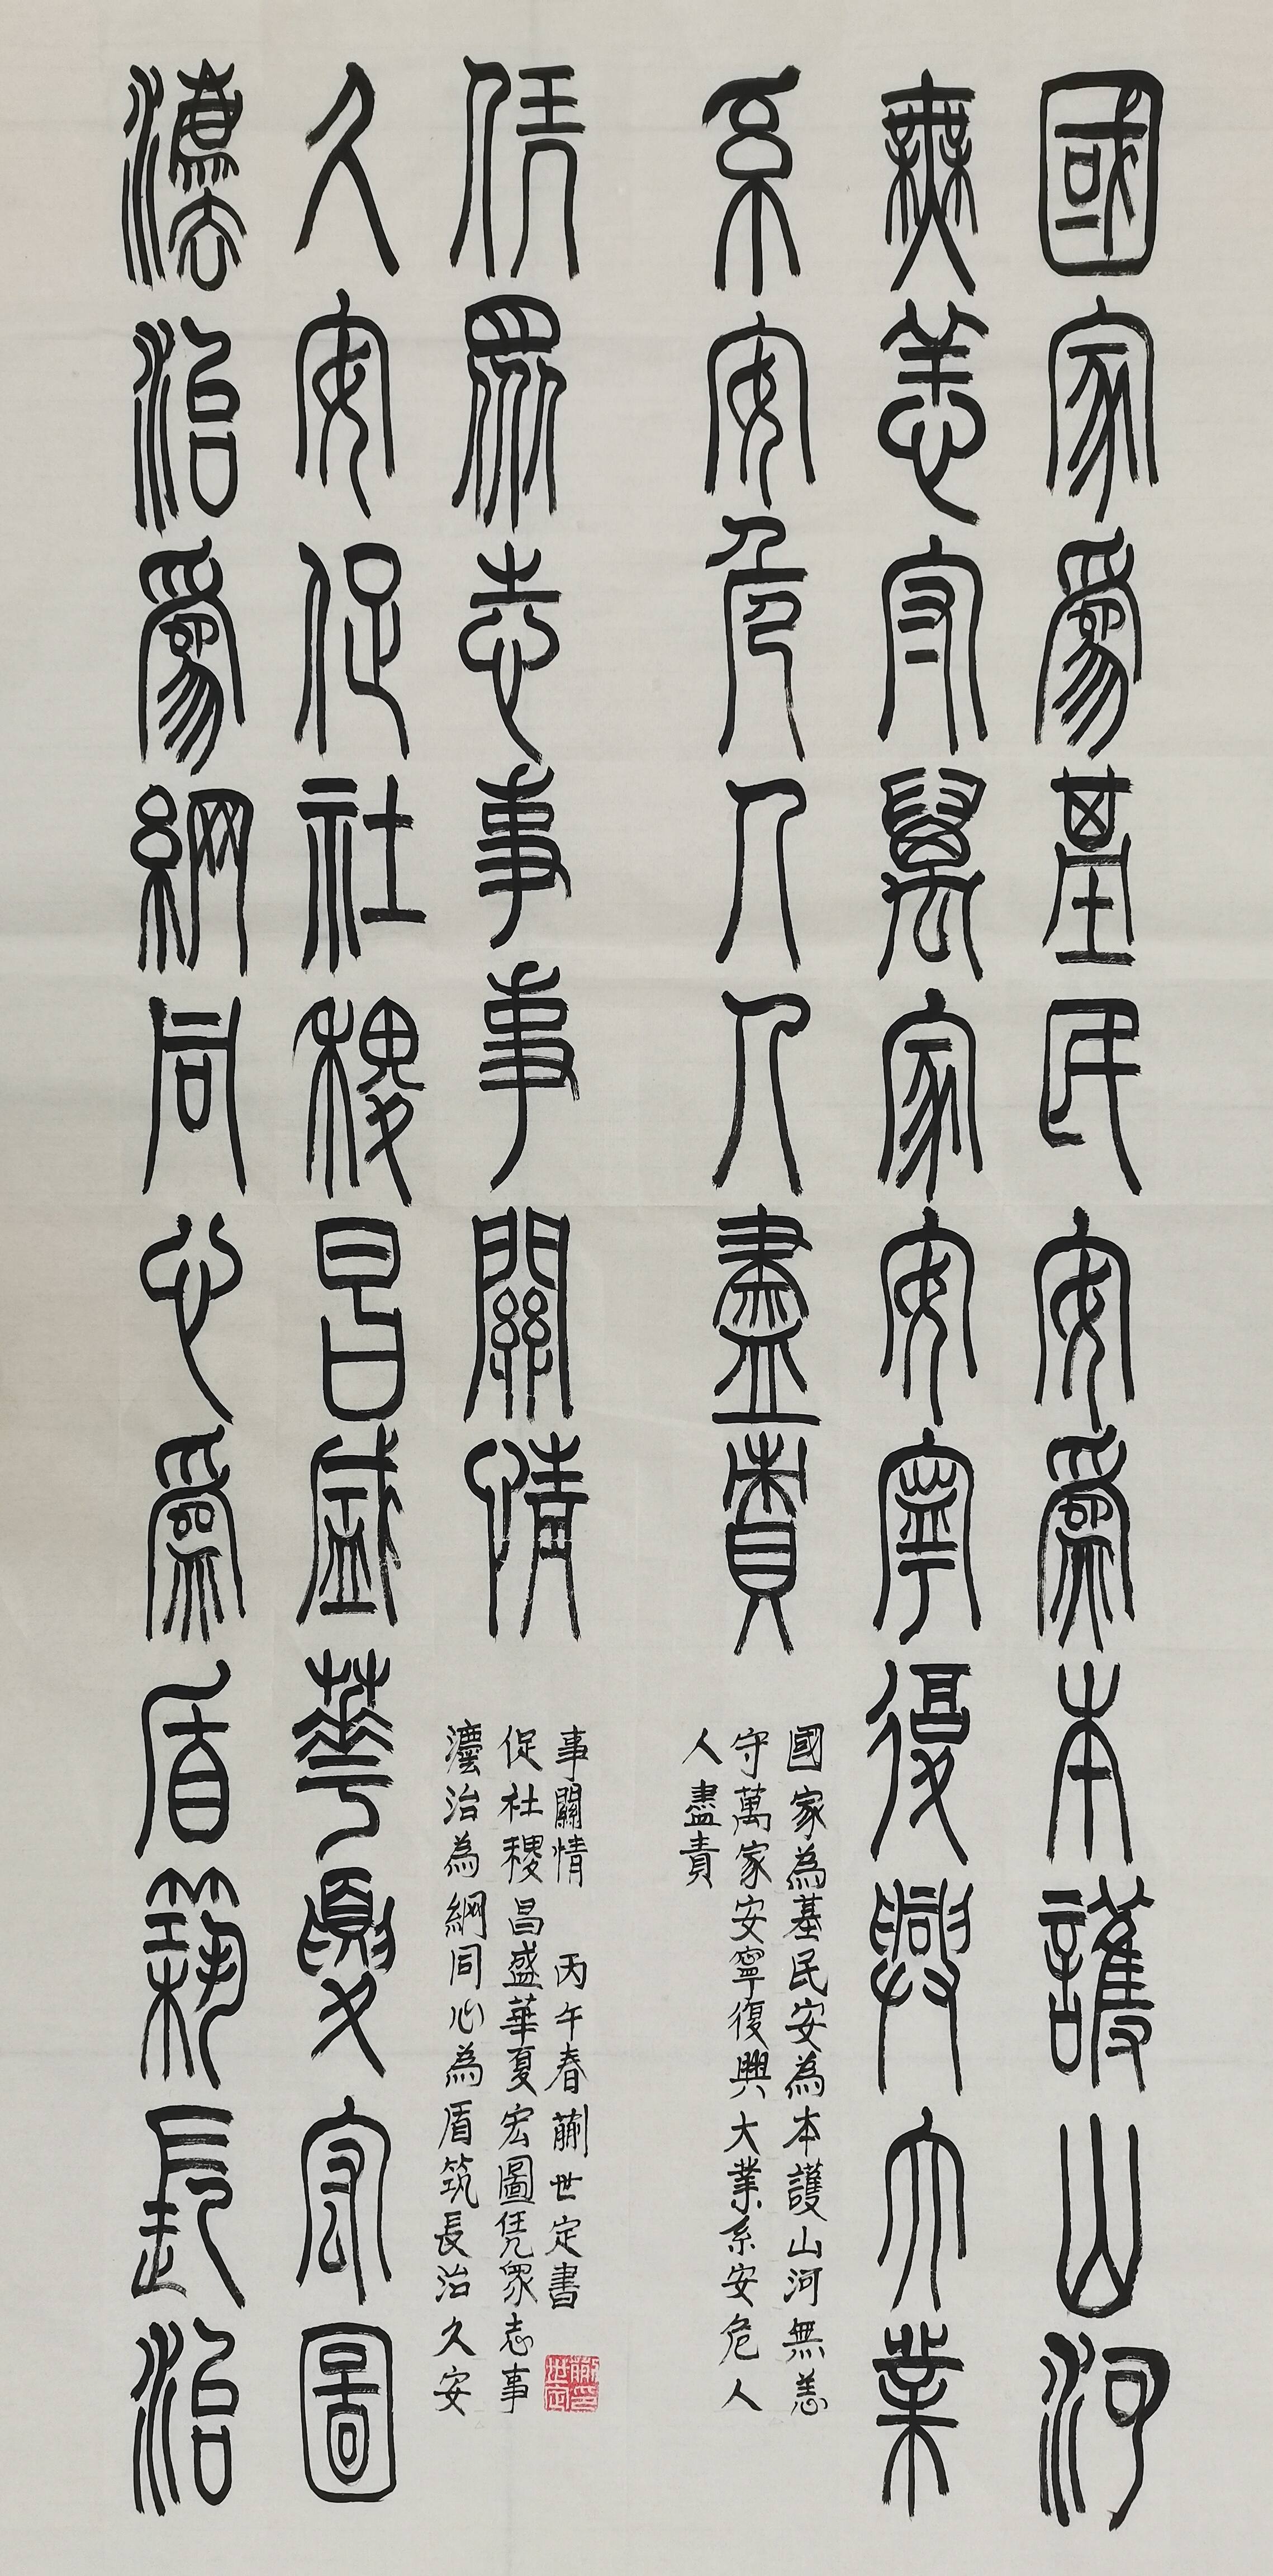 國家爲基民安爲本護山河
無恙守萬家安寧復興大業
系安危人人盡責
國家為基民安為本護山河無恙
守萬家安寧復興大業系安危人
人盡責
灋治爲綱同心爲盾築長治
久安促社稷昌盛華夏宏圖
凭眾志事事關情
灋治為綱同心為盾筑長治久安
促社稷昌盛華夏宏圖凭眾志事
事關情 丙午春蒯世定書
蒯印世定